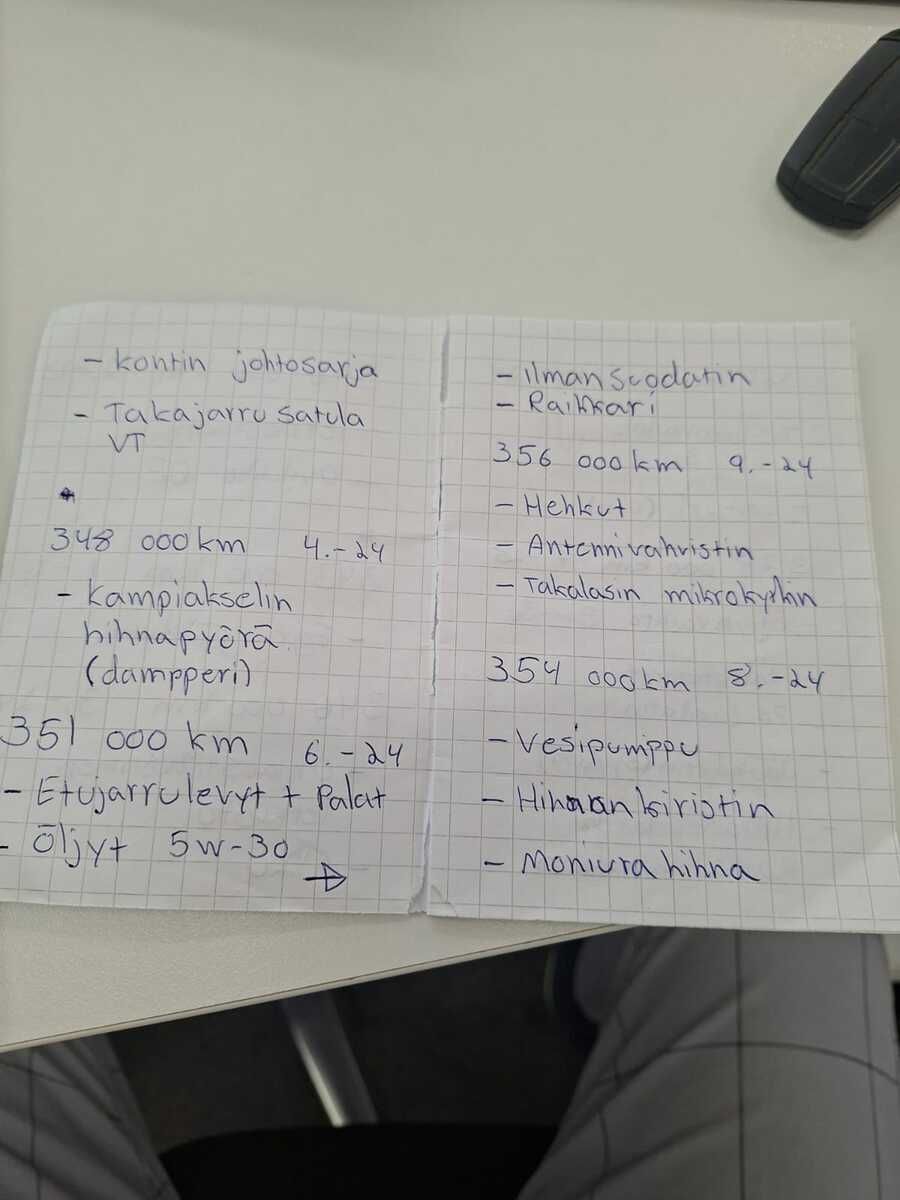 - kontin johtosarja
- Takajarru satula
VT
348 000 km 4.-24
- Kampiakselin
hihnapyörä
(dampperi)
351 000 km 6.-24
- Etujarrulevyt + Palat
- Öljyt 5w-30
→
- ilman suodatin
- Raitisari
356 000 km 9.-24
- Hehkut
- Antennivahvistin
- Takalasin mikrokytkin
354 000 km 8.-24
- Vesipumppu
- Hihnan kiristin
- Moniura hihna